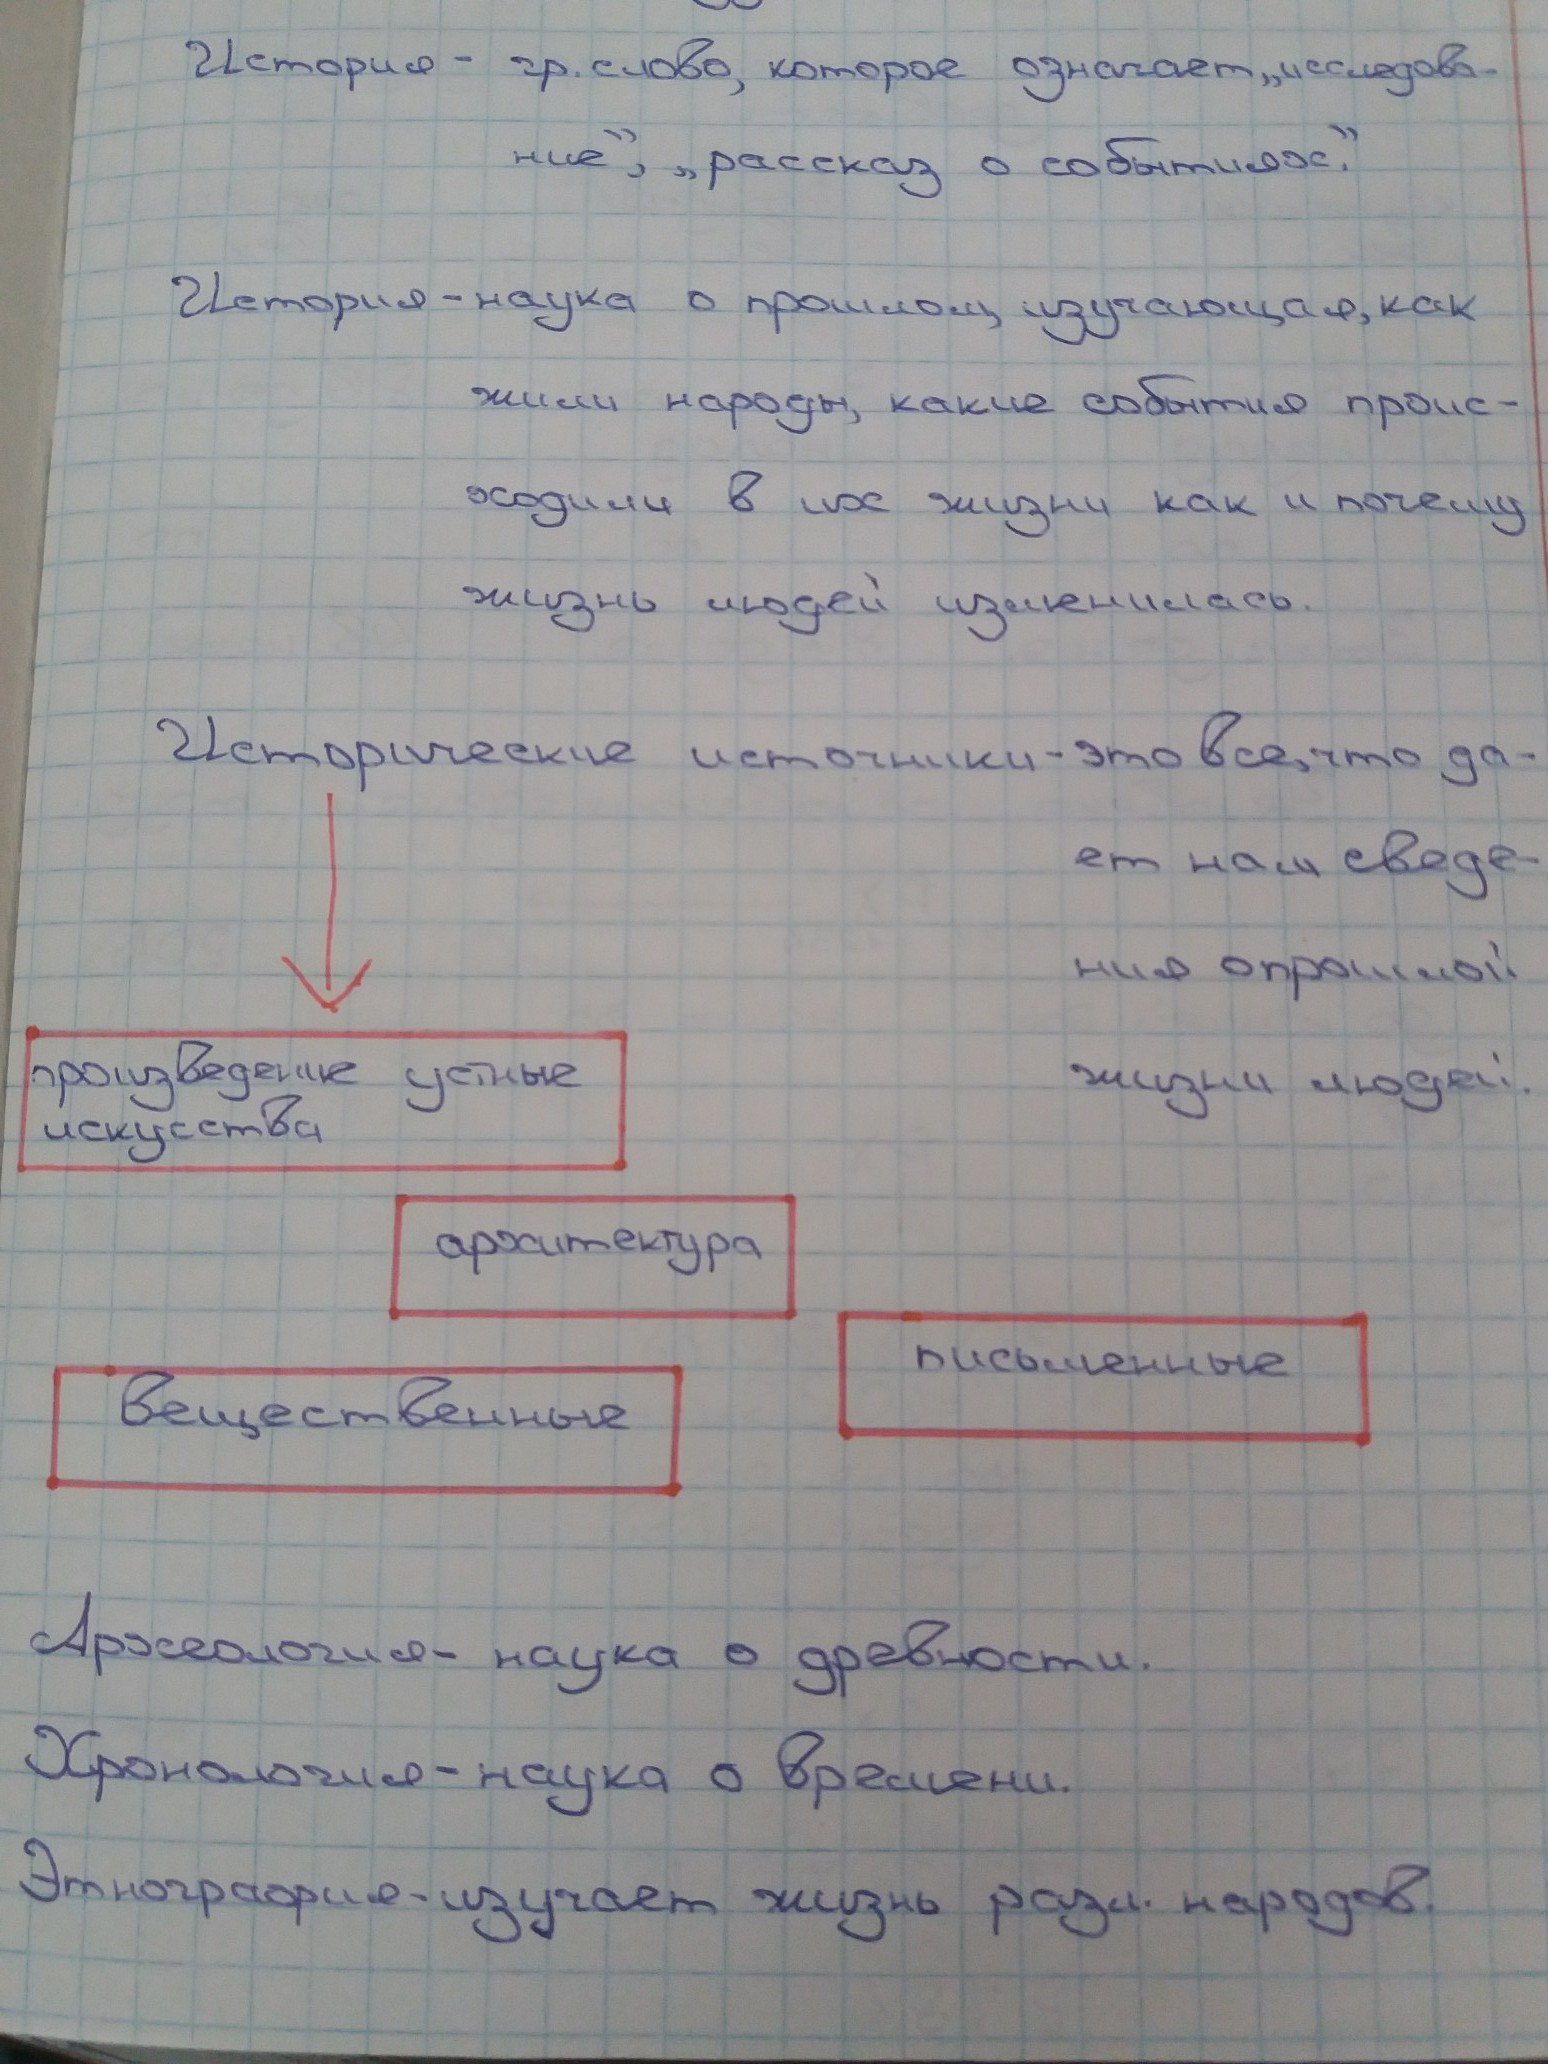 История - гр. слово, которое означает „исследова-
ние”, „рассказ о событиях.”
История - наука о прошлом, изучающая, как
жили народы, какие события проис-
ходили в их жизни как и почему
жизнь людей изменилась.
Исторические источники - это все, что да-
ет нам сведе-
ния о прошлой
жизни людей.
произведение устные
искусства
архитектура
письменные
вещественные
Археология - наука о древности.
Хронология - наука о времени.
Этнография - изучает жизнь разл. народов.